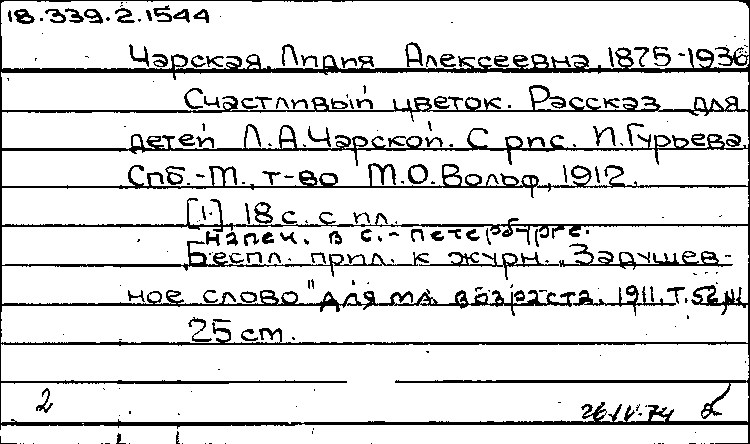 18.339.2.1544
Чарская, Лидия Алексеевна, 1875-1936
Счастливый цветок. Рассказ для
детей Л.А.Чарской. С рис. И.Гурьева.
Спб.-М., т-во М.О.Вольф, 1912.
[1], 18 с. с ил.
Напеч. в С.-Петербурге.
Беспл. прил. к журн. "Задушев-
ное слово" для мл. возраста. 1911, т. 52,
25 см.
2 26.IV.74